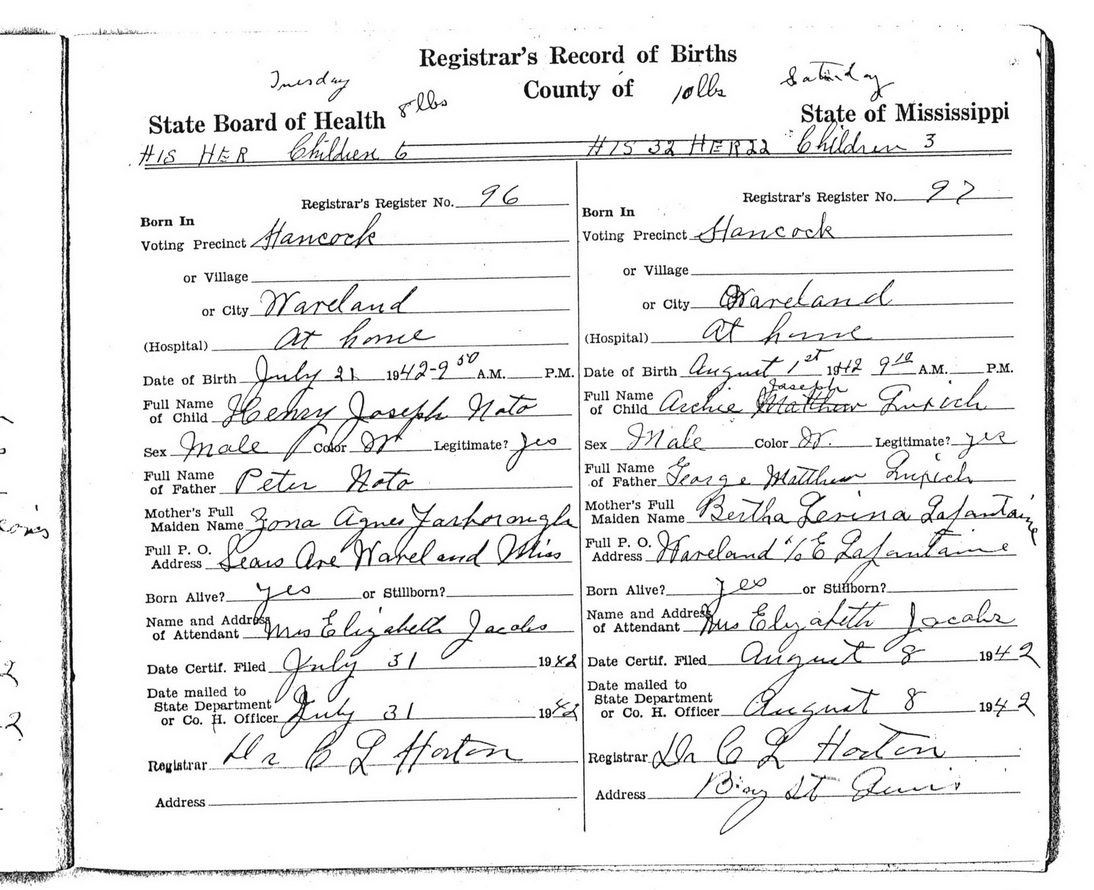 Registrar's Record of Births
Tuesday 8 lbs County of 10 lbs Saturday
State Board of Health State of Mississippi
HIS HER Children 6 HIS 32 HER 22 Children 3
Registrar's Register No. 96
Born In
Voting Precinct Hancock
or Village
or City Waveland
(Hospital) At home
Date of Birth July 21 1942-9 50 A.M. P.M.
Full Name
of Child Henry Joseph Noto
Sex Male Color W Legitimate? yes
Full Name
of Father Peter Noto
Mother's Full
Maiden Name Zona Agnes Yarborough
Full P. O.
Address Sears Ave Waveland Miss
Born Alive? yes or Stillborn?
Name and Address
of Attendant Mrs Elizabeth Jacobs
Date Certif. Filed July 31 1942
Date mailed to
State Department
or Co. H. Officer July 31 1942
Registrar Dr C L Horton
Address
Registrar's Register No. 97
Born In
Voting Precinct Hancock
or Village
or City Waveland
(Hospital) At home
Date of Birth August 1st 1942 9 10 A.M. P.M.
Full Name Joseph
of Child Archie Matthew
Sex Male Color W. Legitimate? yes
Full Name
of Father George Matthew
Mother's Full
Maiden Name Bertha Levina Lafontaine
Full P. O.
Address Waveland % E Lafontaine
Born Alive? yes or Stillborn?
Name and Address
of Attendant Mrs Elizabeth Jacobs
Date Certif. Filed August 8 1942
Date mailed to
State Department
or Co. H. Officer August 8 1942
Registrar Dr C L Horton
Address Bay St Louis